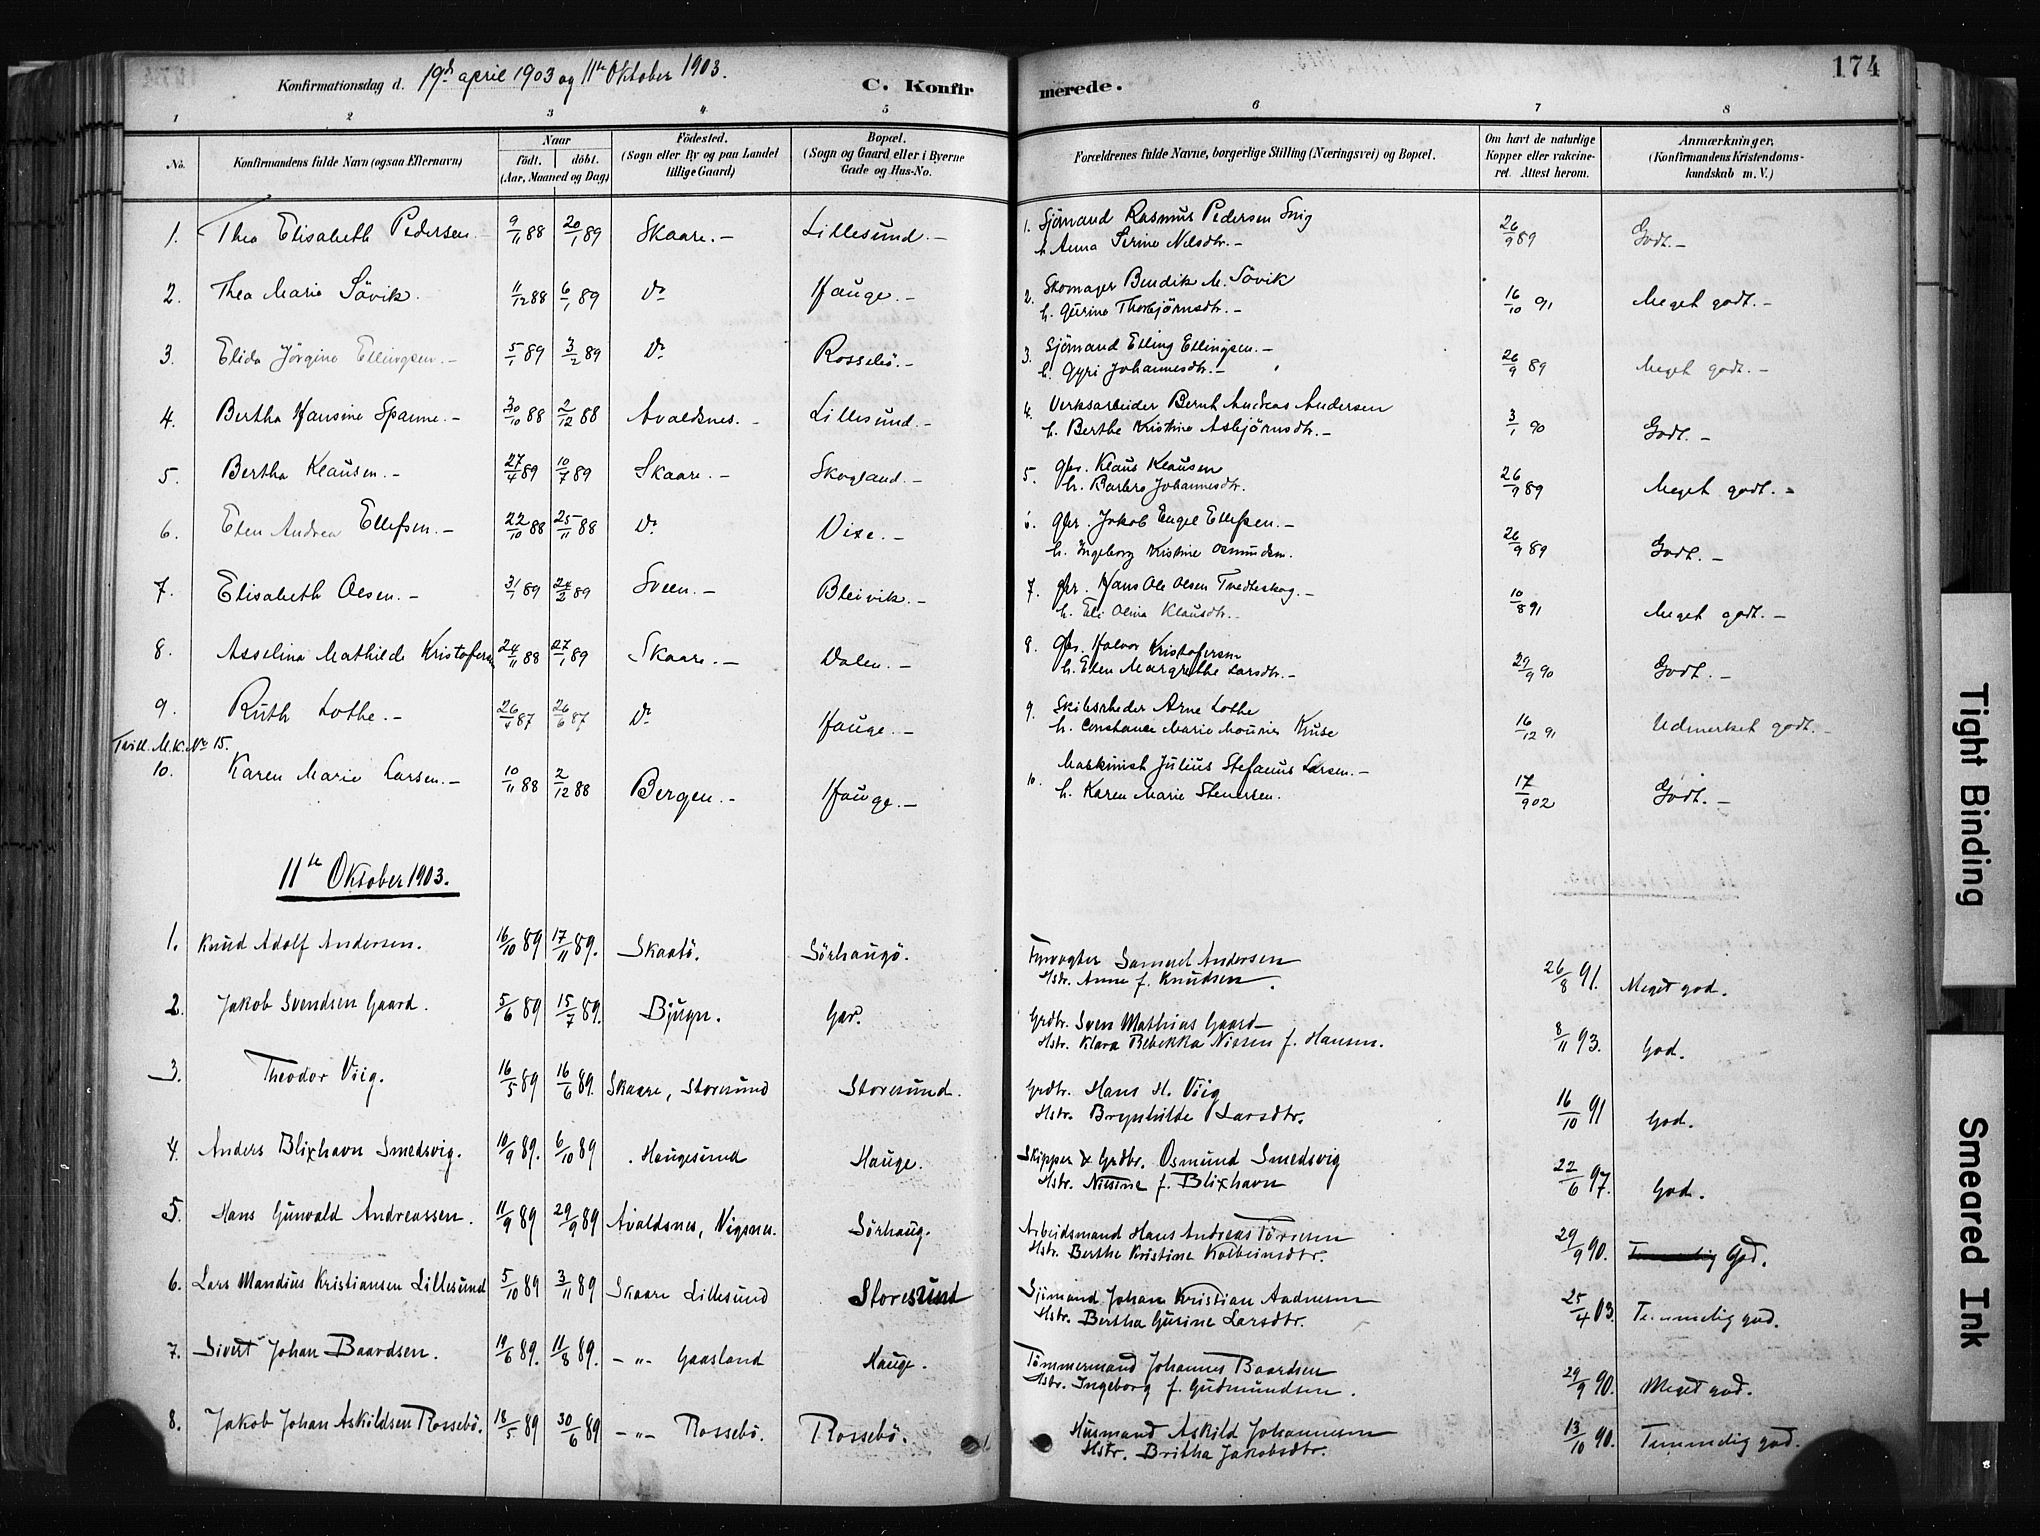 Konfirmationsdag d. 19de april 1903 og 11te Oktober 1903.
C. Konfirmerede.
174
1 2 3 4 5 6 7 8
No. Konfirmandens fulde Navn (ogsaa Efternavn) Naar födt. döbt. (Aar, Maaned og Dag) Födested. (Sogn eller By og paa Landet tillige Gaard) Bopæl. (Sogn og Gaard, eller i Byerne Gade og Hus-No. Forældrenes fulde Navne, borgerlige Stilling (Næringsvei) og Bopæl. Om havt de naturlige Kopper eller vakcineret. Attest herom. Anmærkninger. (Konfirmandens Kristendomskundskab m. V.)
1. Thea Elisabeth Pedersen. 9/11 88 20/1 89 Skaare. Lillesund. 1. Sjömand Rasmus Pedersen 26/9 89 Godt.
h. Anna Serine Nilsdtr.
2. Thea Marie Sövik. 11/12 88 6/1 89 Do Hauge. 2. Skomager Bendik M. Sövik 16/10 91 Meget godt.
h. Gurine Thorbjörnsdtr.
3. Elida Jörgine Ellingsen. 5/1 89 3/2 89 Do Rossebö. 3. Sjömand Elling Ellingsen. 26/9 89 Meget godt.
h. Gyri Johannesdtr.
4. Bertha Hansine Spanne. 30/10 88 2/12 88 Avaldsnes. Lillesund. 4. Verksarbeider Bernt Andreas Andersen 3/1 90 Godt.
h. Berthe Kristine Asbjörnsdtr.
5. Bertha Klausen. 27/4 89 10/7 89 Skaare. Skogland. 5. Gbr. Klaus Klausen 26/9 89 Meget godt.
h. Barbro Johannesdtr.
6. Elen Andrea Ellefsen. 22/10 88 25/11 88 Do Vixe. 6. Gbr. Jakob Engel Ellefsen. 26/9 89 Godt.
h. Ingeborg Kristine Osmundsen.
7. Elisabeth Olsen. 31/1 89 24/2 89 Sveen. Bleivik. 7. Gbr. Hans Ole Olsen Tvedteskog. 10/8 91 Meget godt.
h. Eli Olina Klausdtr.
8. Asselina Mathilde Kristofersen 24/11 88 27/1 89 Skaare. Dalen. 8. Gbr. Halvor Kristofersen 29/9 90 Godt.
h. Elen Margrethe Larsdtr.
9. Ruth Lothe. 26/4 87 26/6 87 Do Hauge. 9. Skibsrheder Arne Lothe 16/12 91 Udmerket godt.
h. Constance Marie Kruse
Tvill. M.K. No 15.
10. Karen Marie Larsen. 10/11 88 2/12 88 Bergen. Hauge. 10. Maskinist Julius Stefanus Larsen. 17/9 02 Godt.
h. Karen Marie Stenersen.
11te Oktober 1903.
1. Knud Adolf Andersen. 16/10 89 17/11 89. Skaatö. Sörhaugö. Fyrvogter Samuel Andersen 26/8 91. Meget god.
Hstr. Anne f. Knudsen.
2. Jakob Svendsen Gaard. 5/6 89 15/7 89. Bjugn. Gar. Grdbr. Sven Mathias Gaard 8/11 93. God.
Hstr. Klara Bebekka Nissen f. Hansen.
3. Theodor Viig. 16/5 89 16/6 89. Skaare, Storesund Storesund. Grdbr. Hans H. Viig 16/10 91 God.
Hstr. Brynhilde Larsdtr.
4. Anders Blixhavn Smedsvig. 10/9 89. 6/10 89 Haugesund Hauge. Skipper & Grdbr. Osmund Smedsvig 22/6 97. God.
Hstr. Nilsine f. Blixhavn
5. Hans Gunvald Andreassen. 11/9 89 29/9 89 Avaldsnes, Vigsnes. Sörhaug. Arbeidsmand Hans Andreas Törresen 29/9 90. God.
Hstr. Berthe Kristine Kolbeinsdtr.
6. Lars Mandius Kristiansen Lillesund 5/10 89 3/11 89 Skaare Lillesund Storesund Sjömand Johan Kristian Aadnesen 25/4 03. Temmelig god.
Hstr. Bertha Gurine Larsdtr.
7. Sivert Johan Baardsen. 19/6 89. 11/8 89. -"- Gaasland Hauge. Tömmermand Johannes Baardsen 29/9 90. Meget god.
Hstr. Ingeborg f. Gudmundsen.
8. Jakob Johan Askildsen Rossebö. 18/5 89 30/6 89 -"- Rossebö. Rossebö. Husmand Askild Johannesen 13/10 90. Temmelig god.
Hstr. Britha Jakobsdtr.
Tight Binding
Smeared Ink